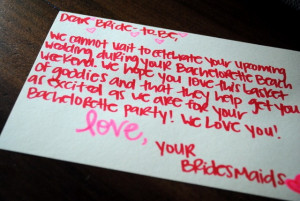 Dear Bride-to-Be,
We cannot wait to celebrate your upcoming
wedding during your Bachelorette Beach
Weekend. We hope you love this basket
of goodies and that they help get you
as excited as we are for your
Bachelorette party! We love you!
love,
your
Bridesmaids